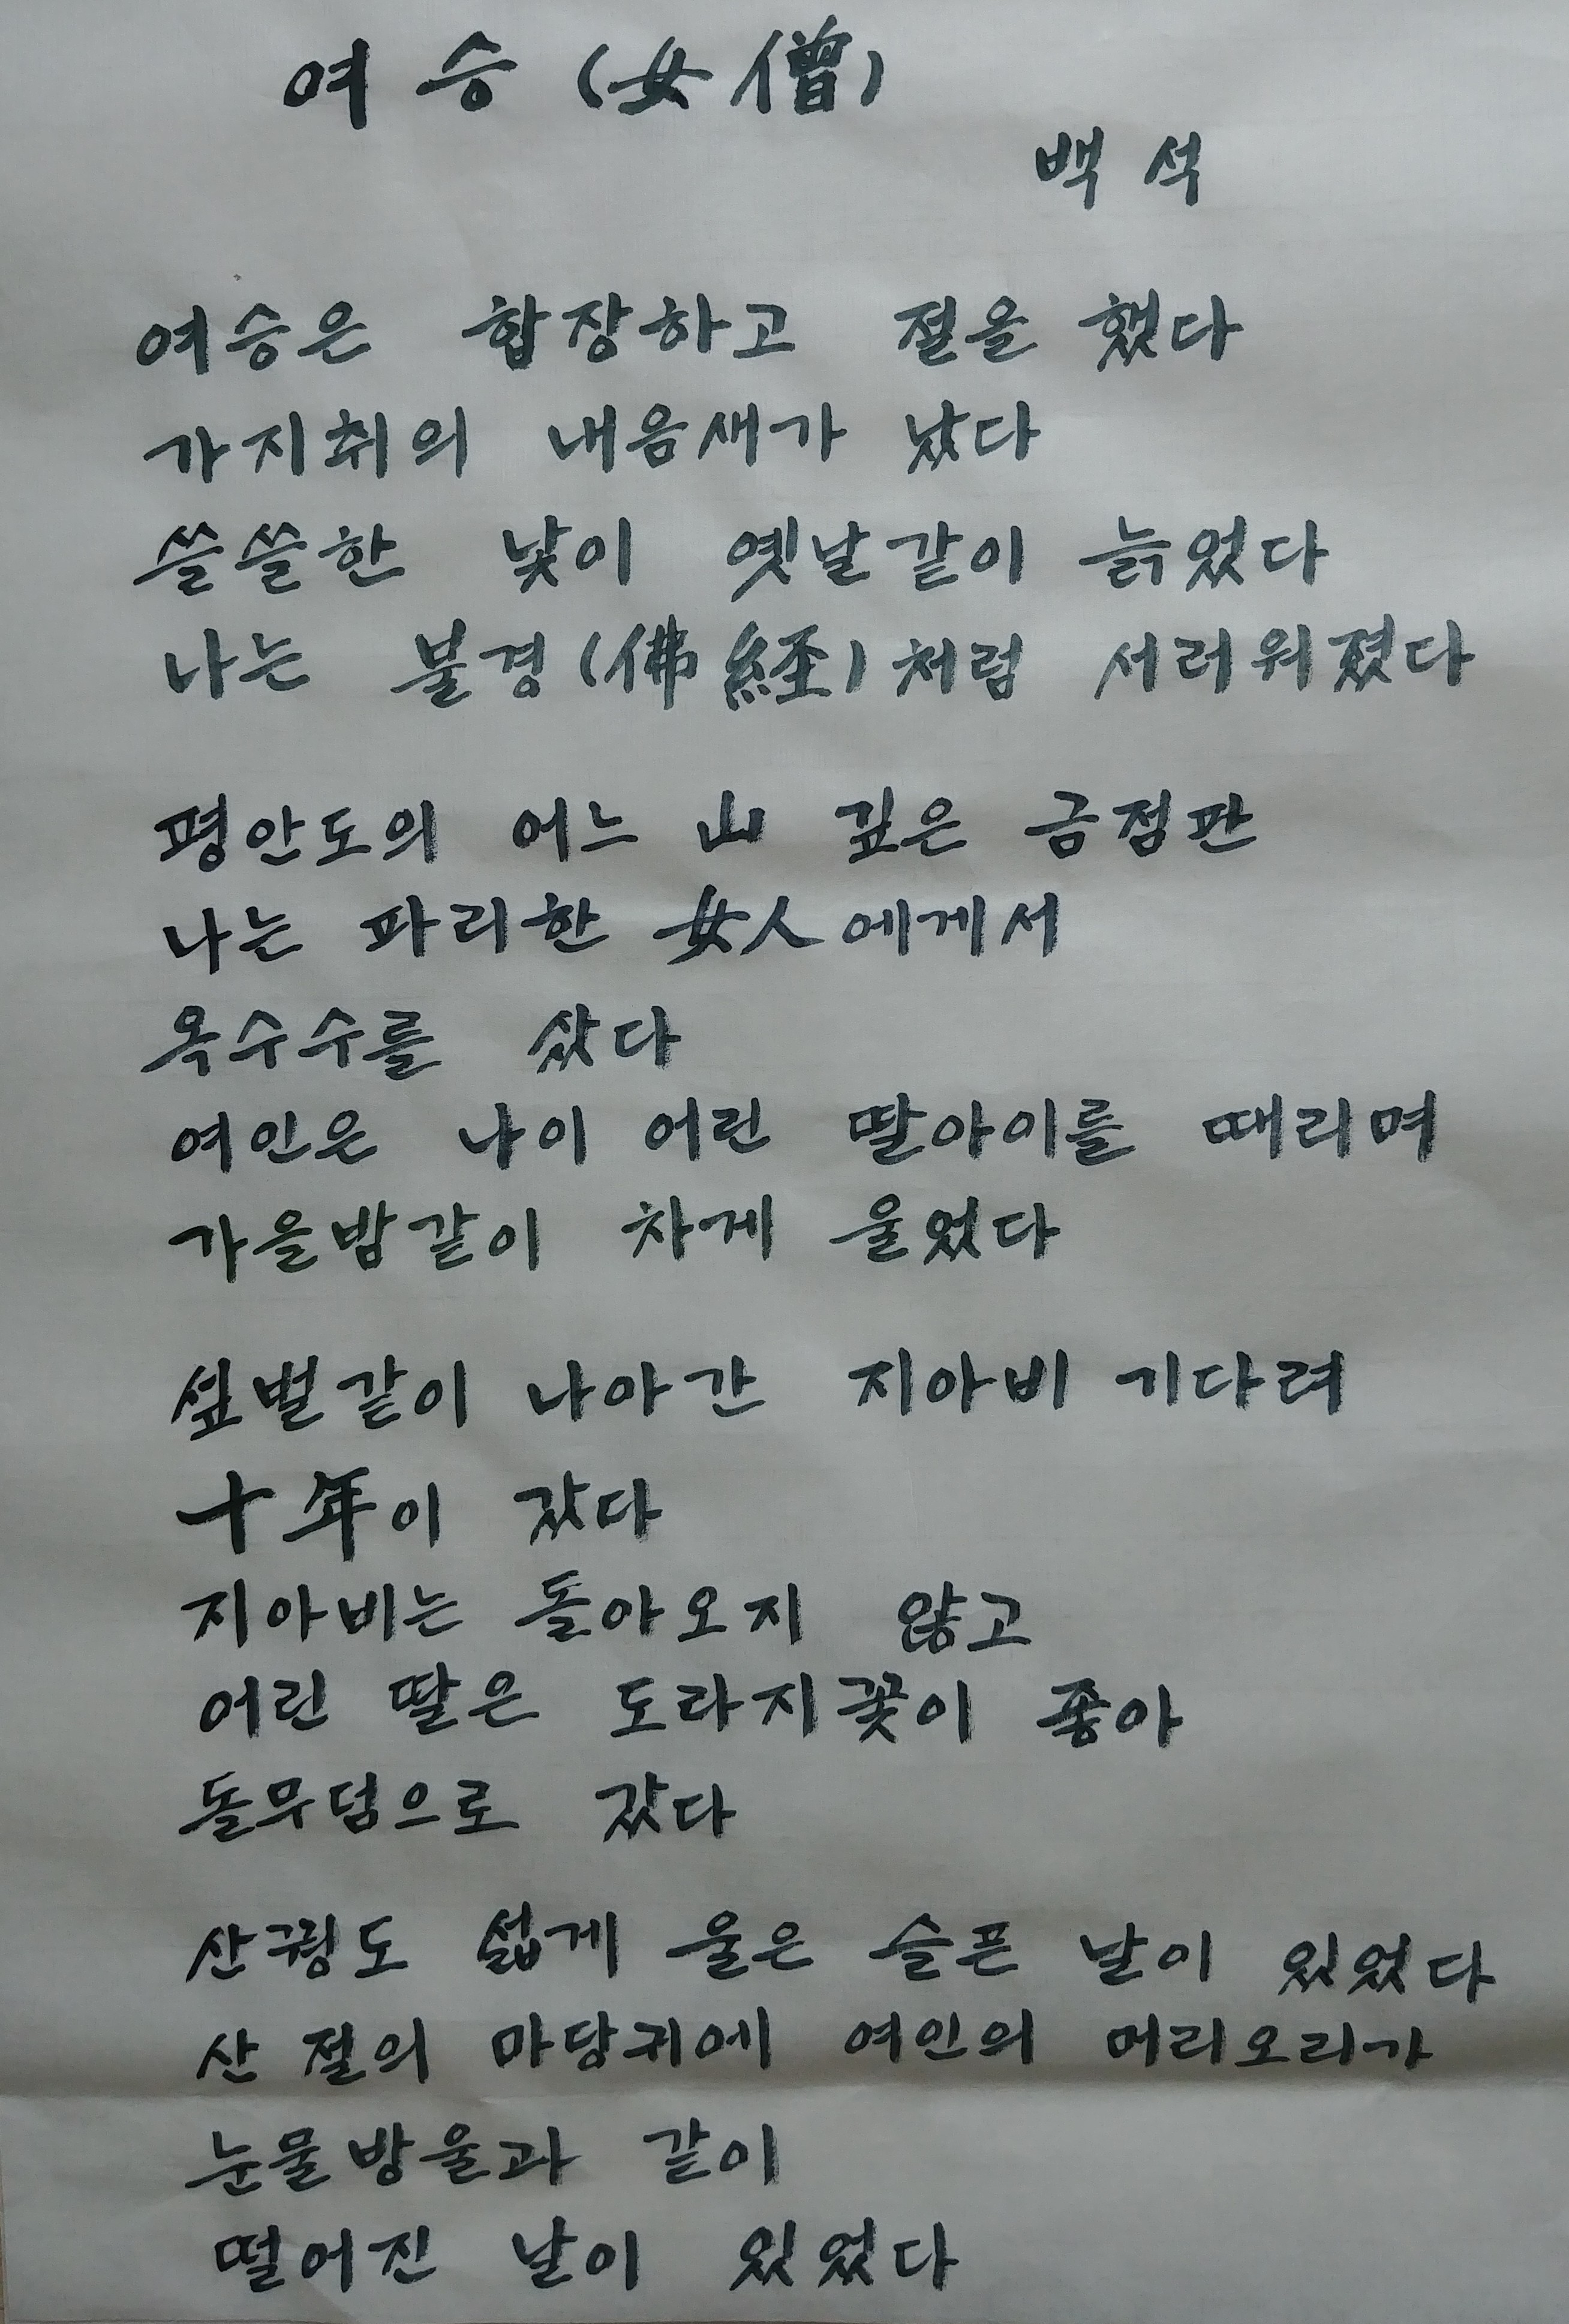 여승(女僧)
백석
여승은 합장하고 절을 했다
가지취의 내음새가 났다
쓸쓸한 낯이 옛날같이 늙었다
나는 불경(佛経)처럼 서러워졌다
평안도의 어느 山 깊은 금점판
나는 파리한 女人에게서
옥수수를 샀다
여인은 나이 어린 딸아이를 때리며
가을밤같이 차게 울었다
섶벌같이 나아간 지아비 기다려
十年이 갔다
지아비는 돌아오지 않고
어린 딸은 도라지꽃이 좋아
돌무덤으로 갔다
산꿩도 섧게 울은 슬픈 날이 있었다
산 절의 마당귀에 여인의 머리오리가
눈물방울과 같이
떨어진 날이 있었다